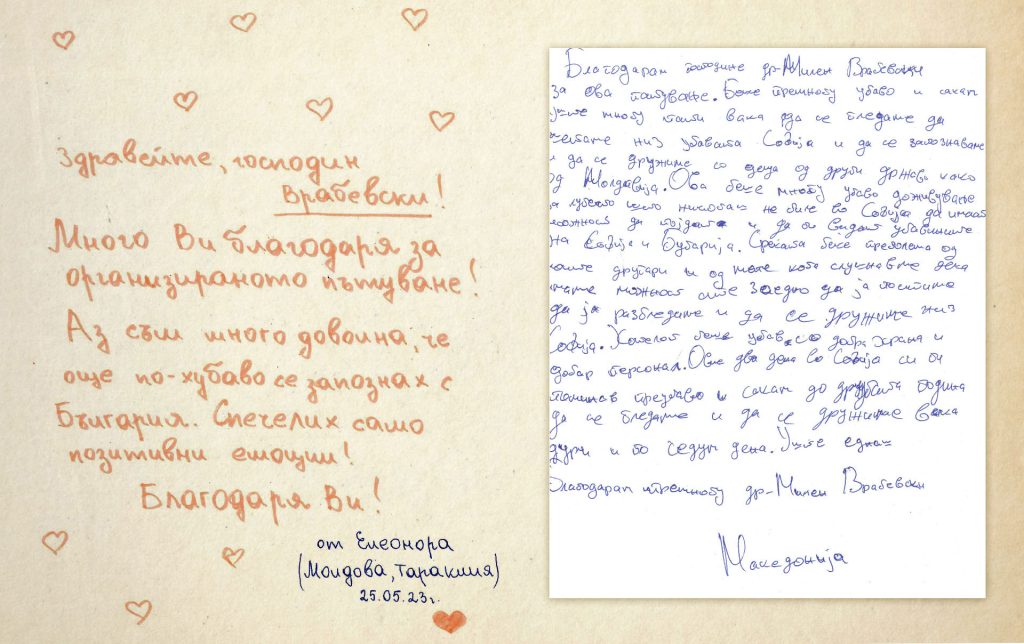 Здравейте, господин
Врабевски!
Много Ви благодаря за
организираното пътуване!
Аз съм много доволна, че
още по-хубаво се запознах с
България. Спечелих само
позитивни емоции!
Благодаря Ви!
от Елеонора
(Молдова, Тараклия)
25.05.23г.
Благодарам господине др-Милен Врабевски
За ова патување. Беше премногу убаво и сакам
уште многу пати вака да се гледаме да
шетаме низ убавата Софија и да се запознаваме
и да се дружиме со деца од други држави како
од Молдавија. Ова беше многу убаво доживување
луѓето што никогаш не биле во Софија да имаат
можност да појдат и да ги видат убавините
на Софија и Бугарија. Среќата беше преголема од
моите другари и од мене кога слушнавме дека
имаме можност сите заедно да ја посетиме
да ја разгледаме и да се дружиме низ
Софија. Хотелот беше убав, со добра храна и
добар персонал. Овие два дена во Софија си ги
поминав прездраво и сакам до другата година
да се гледаме и да се дружиме вака
дури и по седум дена. Уште еднаш
Благодарам премногу др-Милен Врабевски
Македонија